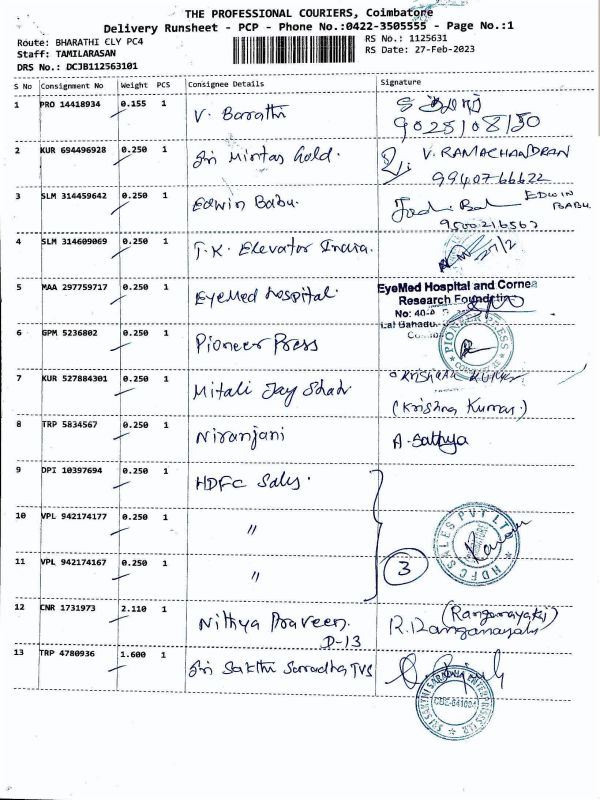 THE PROFESSIONAL COURIERS, Coimbatore
Delivery Runsheet - PCP - Phone No.:0422-3505555 - Page No.:1
Route: BHARATHI CLY PC4
RS No.: 1125631
Staff: TAMILARASAN
RS Date: 27-Feb-2023
DRS No.: DCJB112563101
S No Consignment No Weight PCS Consignee Details Signature
1 PRO 14418934 0.155 1 V. Barathi
9025108150
2 KUR 694496928 0.250 1 Sri Mintas Gold. V. RAMACHANDRAN
9940766622
3 SLM 314459642 0.250 1 Edwin Babu. EDWIN BABU
9500216567
4 SLM 314609069 0.250 1 T.K. Elevator India. 27/2
5 MAA 297759717 0.250 1 EyeMed hospital.
EyeMed Hospital and Cornea
Research Foundation
No: 40-
Lal Bahadu
6 GPM 5236802 0.250 1 Pioneer Press
PIONEER PRESS
7 KUR 527884301 0.250 1 Mitali Jay Shah KRISHNA KUMAR
(Krishna Kumar)
8 TRP 5834567 0.250 1 Niranjani A. Sathya
9 DPI 10397694 0.250 1 HDFC Sales.
10 VPL 942174177 0.250 1 "
HDFC SALES PVT LTD
11 VPL 942174167 0.250 1 " 3
12 CNR 1731973 2.110 1 Nithya Praveen. (Ranganayaki)
D-13 R. Ranganayaki
13 TRP 4780936 1.600 1 Sri Sakthi Saradha TVS
SRI SAKTHI SARADHA ENTERPRISES
CBE-641004